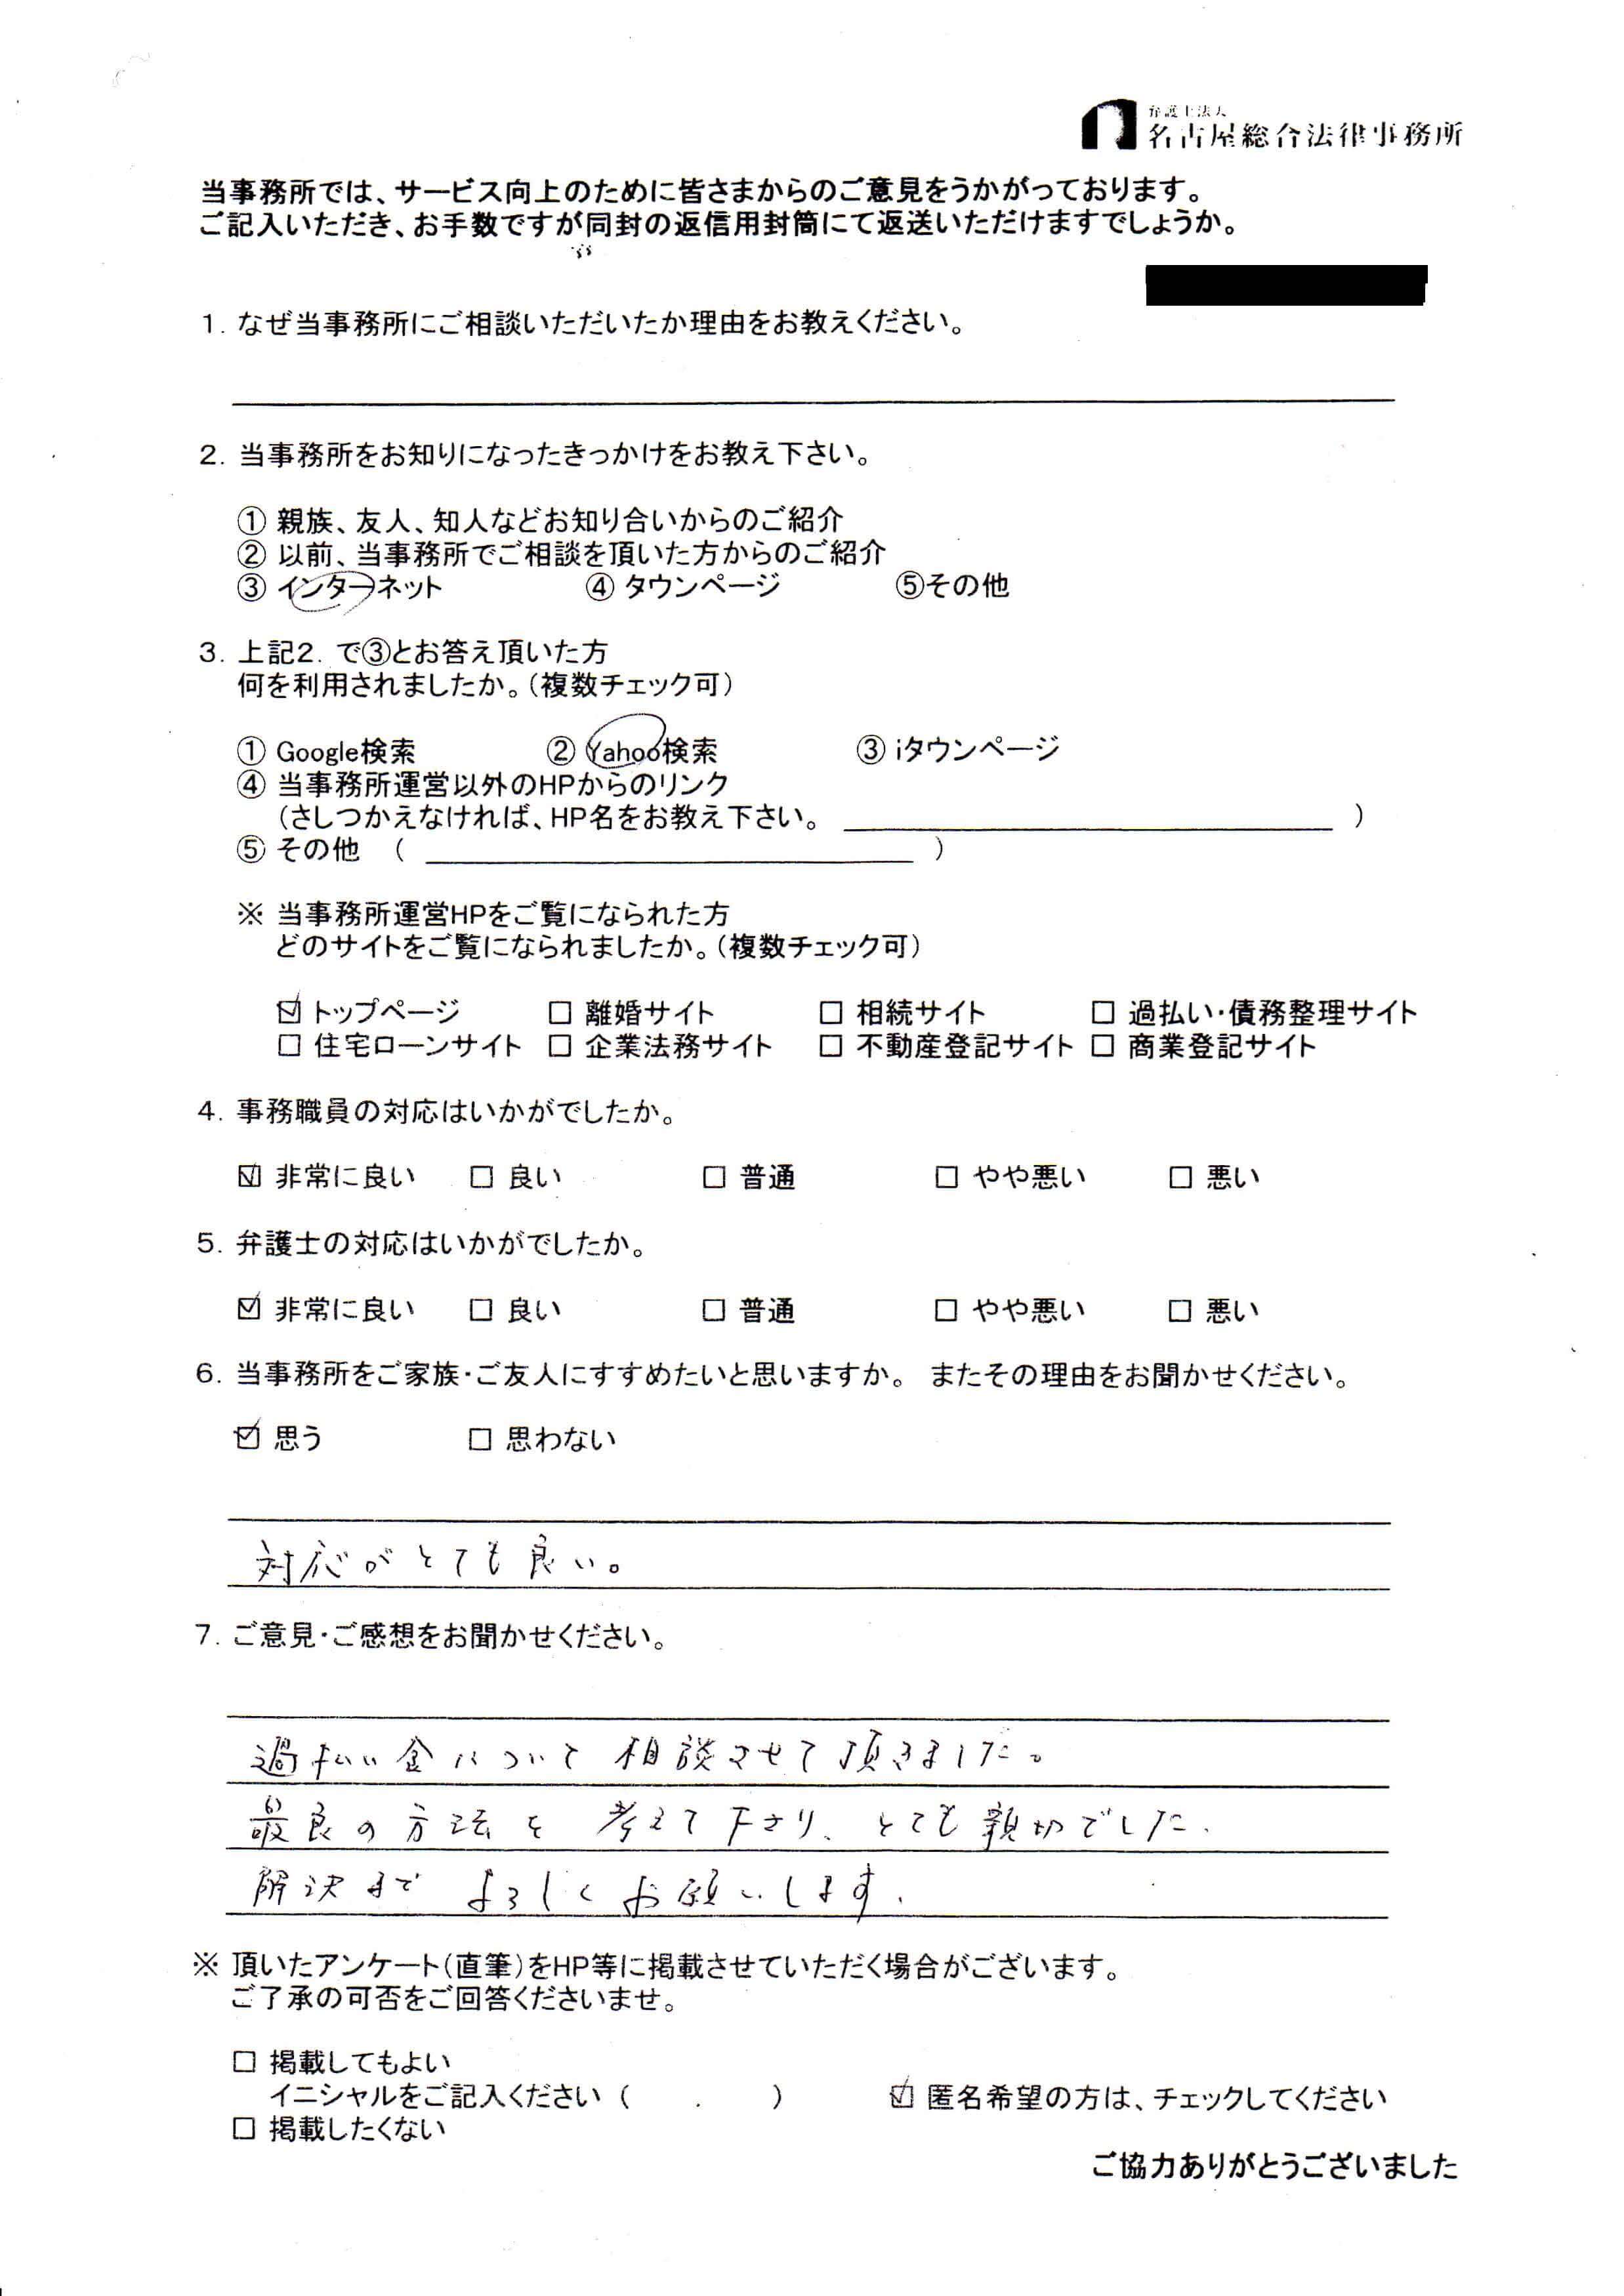 弁護士法人
名古屋総合法律事務所
当事務所では、サービス向上のために皆さまからのご意見をうかがっております。
ご記入いただき、お手数ですが同封の返信用封筒にて返送いただけますでしょうか。
1. なぜ当事務所にご相談いただいたか理由をお教えください。
2. 当事務所をお知りになったきっかけをお教え下さい。
① 親族、友人、知人などお知り合いからのご紹介
② 以前、当事務所でご相談を頂いた方からのご紹介
③ インターネット ④ タウンページ ⑤その他
3. 上記2. で③とお答え頂いた方
何を利用されましたか。（複数チェック可）
① Google検索 ② Yahoo検索 ③ iタウンページ
④ 当事務所運営以外のHPからのリンク
（さしつかえなければ、HP名をお教え下さい。 ）
⑤ その他 （ ）
※ 当事務所運営HPをご覧になられた方
どのサイトをご覧になられましたか。（複数チェック可）
☑ トップページ □ 離婚サイト □ 相続サイト □ 過払い・債務整理サイト
□ 住宅ローンサイト □ 企業法務サイト □ 不動産登記サイト □ 商業登記サイト
4. 事務職員の対応はいかがでしたか。
☑ 非常に良い □ 良い □ 普通 □ やや悪い □ 悪い
5. 弁護士の対応はいかがでしたか。
☑ 非常に良い □ 良い □ 普通 □ やや悪い □ 悪い
6. 当事務所をご家族・ご友人にすすめたいと思いますか。 またその理由をお聞かせください。
☑ 思う □ 思わない
対応がとても良い。
7. ご意見・ご感想をお聞かせください。
過払い金について相談させて頂きました。
最良の方法を考えて下さり、とても親切でした。
解決までよろしくお願いします。
※ 頂いたアンケート（直筆）をHP等に掲載させていただく場合がございます。
ご了承の可否をご回答くださいませ。
□ 掲載してもよい
イニシャルをご記入ください（ . ） ☑ 匿名希望の方は、チェックしてください
□ 掲載したくない
ご協力ありがとうございました